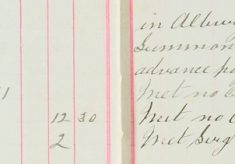 in Albu
Summon
advance pa
1 met no
12 30 met no
2 met Serg